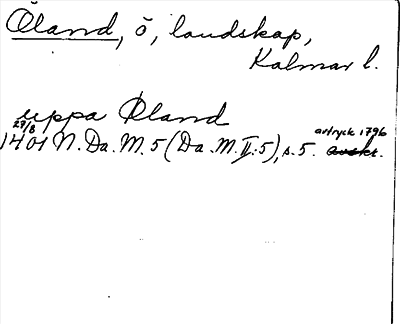 Öland, ö, landskap,
Kalmar l.
uppa Øland
27/8 1401 N. Da. M. 5 (Da. M. II:5), s. 5. avtryck 1796 avskr.